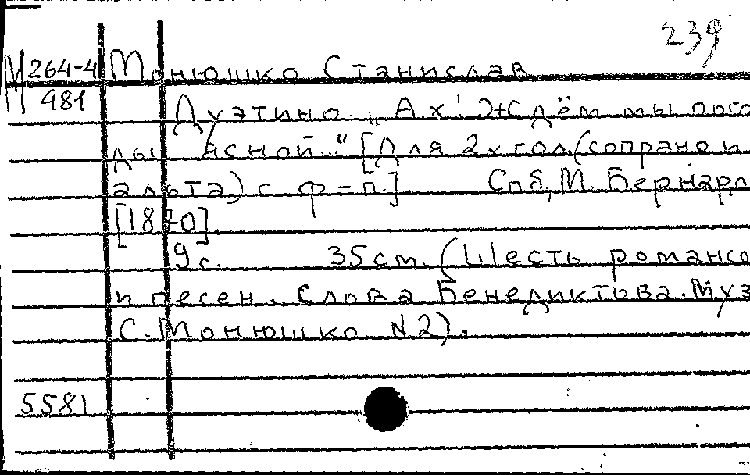 239
М 264-4 Монюшко Станислав
П 981
Дуэтино „Ах! Ждём мы пого
ды ясной." [Для 2х гол. (сопрано и
альта) с ф-п.] Спб, М. Бернард
[1870].
9 с. 35 см. (Шесть романсо
и песен. Слова Бенедиктова. Муз
С. Монюшко N. 2).
5581